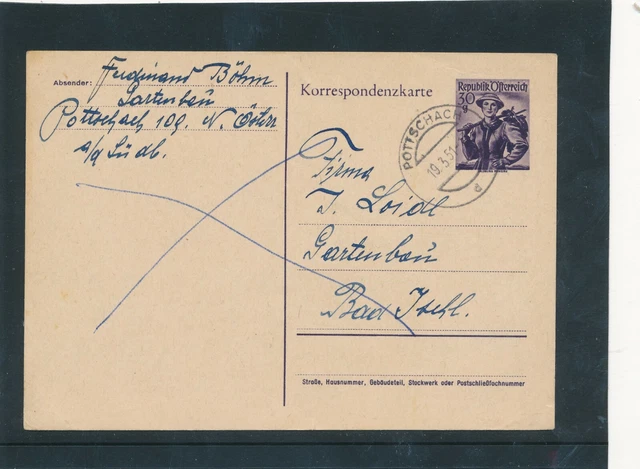 Absender: Ferdinand Böhm
Gartenbau
Pottschach 109. N. Österr
a/d Südb.
Korrespondenzkarte
Republik Österreich
30
POTTSCHACH
19.3.51
Firma
J. Loidl
Gartenbau
Bad Ischl.
Straße, Hausnummer, Gebäudeteil, Stockwerk oder Postschließfachnummer